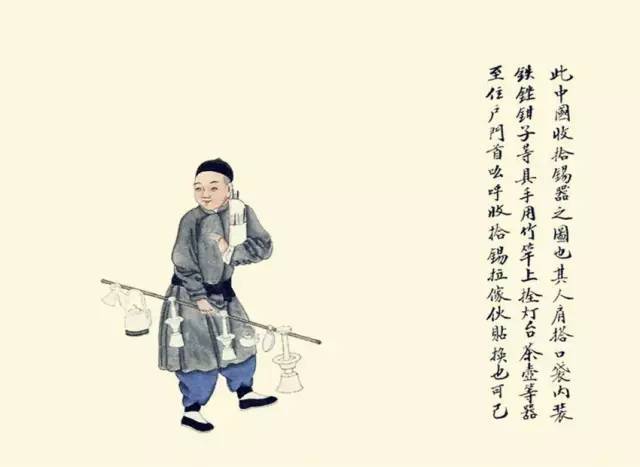 此中國收拾錫器之圖也其人肩搭口袋内装
鉄銼鉗子等具手用竹竿上拴灯台茶壺等器
至住戶門首吆呼收拾錫拉傢伙貼換也可已